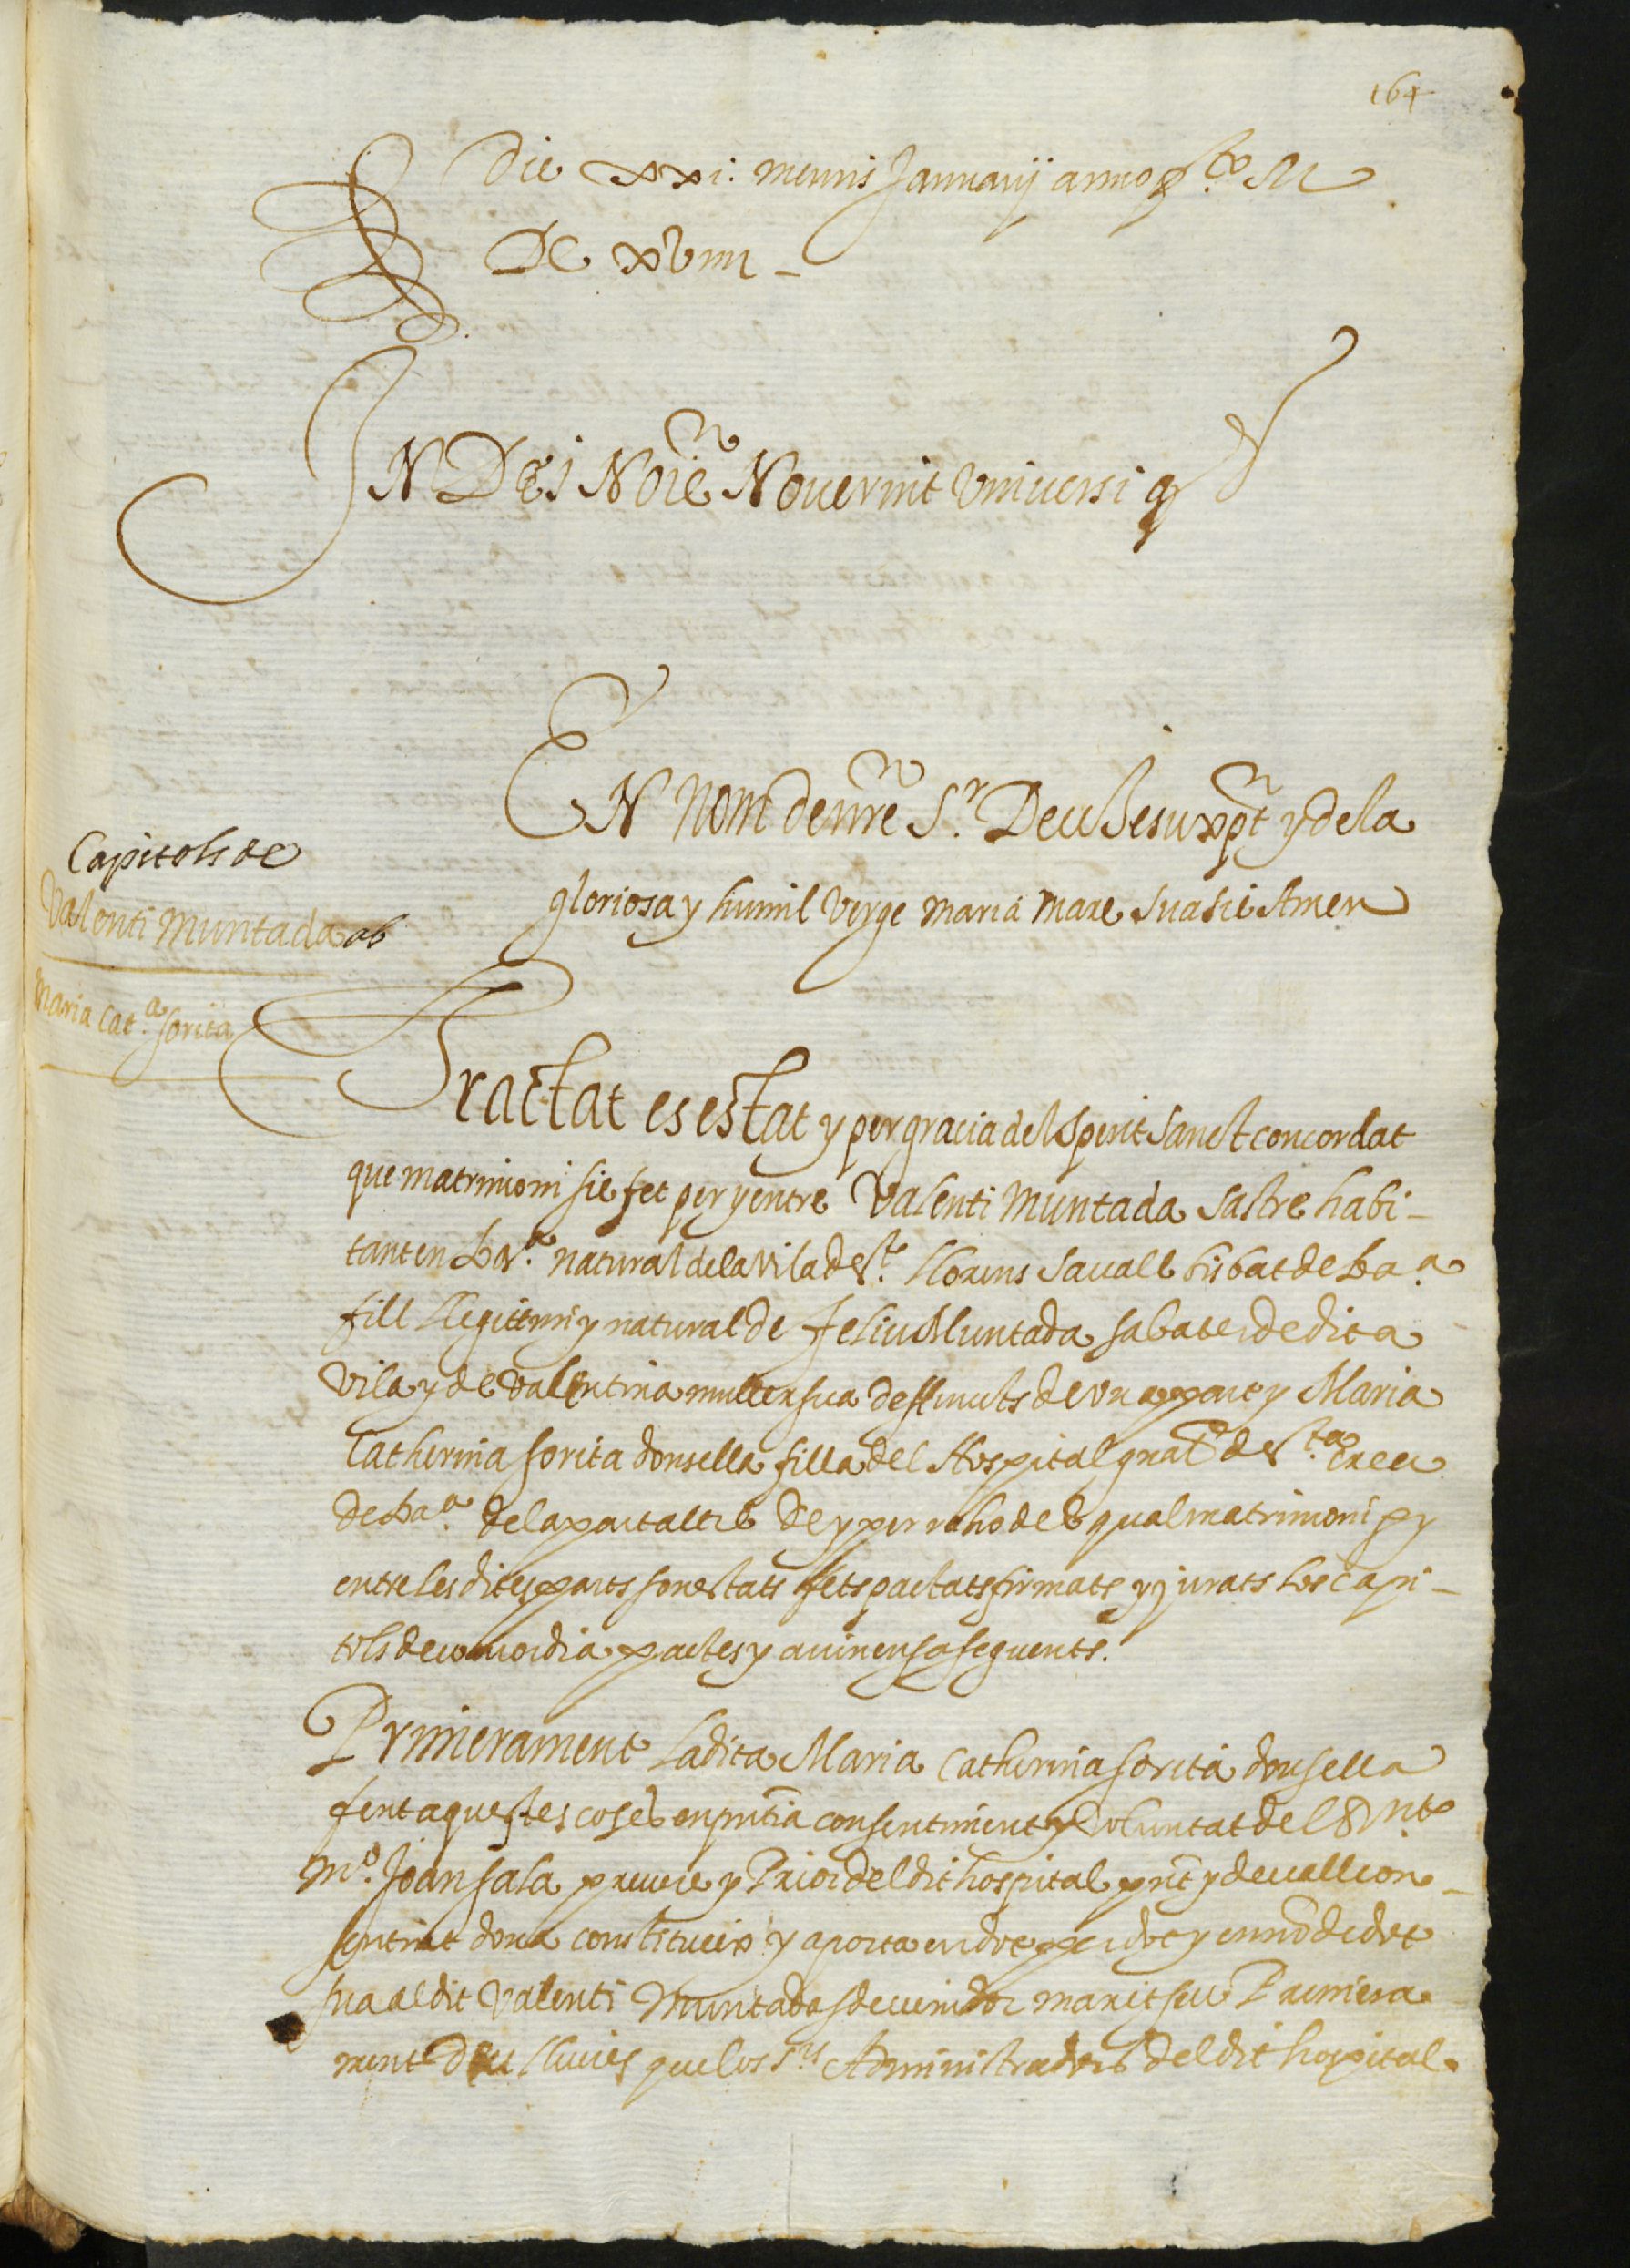 164
Die xxi. mensis Januarij anno p.to M
DC xviiii _
IN DEI Noie Noverint Universi q
EN NOM de nre S.r Deu Jesu xpt y de la
gloriosa y humil Verge maria mare sua sie Amen
Capitols de
Valenti Muntada ab
Maria Cat.a Sorita
Tractat es estat y per gracia del Sperit Sanct concordat
que matrimoni sie fet per y entre Valenti Muntada Sastre habi-
tant en Bar.a natural de la vila de S.t Llorens Savall bisbat de Bar.a
fill llegittim y natural de Feliu Muntada sabater de dita
vila y de Valentina muller sua deffuncts de una part y Maria
Catherina Sorita donsella filla del Hospital gnal de S.ta Creu
de Bar.a de la part altre De y per raho del qual matrimoni p y
entre les dites parts son estats fets pactats firmats y jurats los capi-
tols de concordia pactes y avinensa seguents.
Primerament La dita Maria Catherina Sorita donsella
fent aquestes coses en pntia consentiment y voluntat del Rnt
m.o Joan Sala prevere y Prior del dit hospital pnt y devall con-
sentint dona constitueix y aporta en dot per dot y en nom de dot
sua al dit Valenti Muntada sdevenidor marit seu Primera
ment Deu lliures que los S.rs Administradors del dit hospital